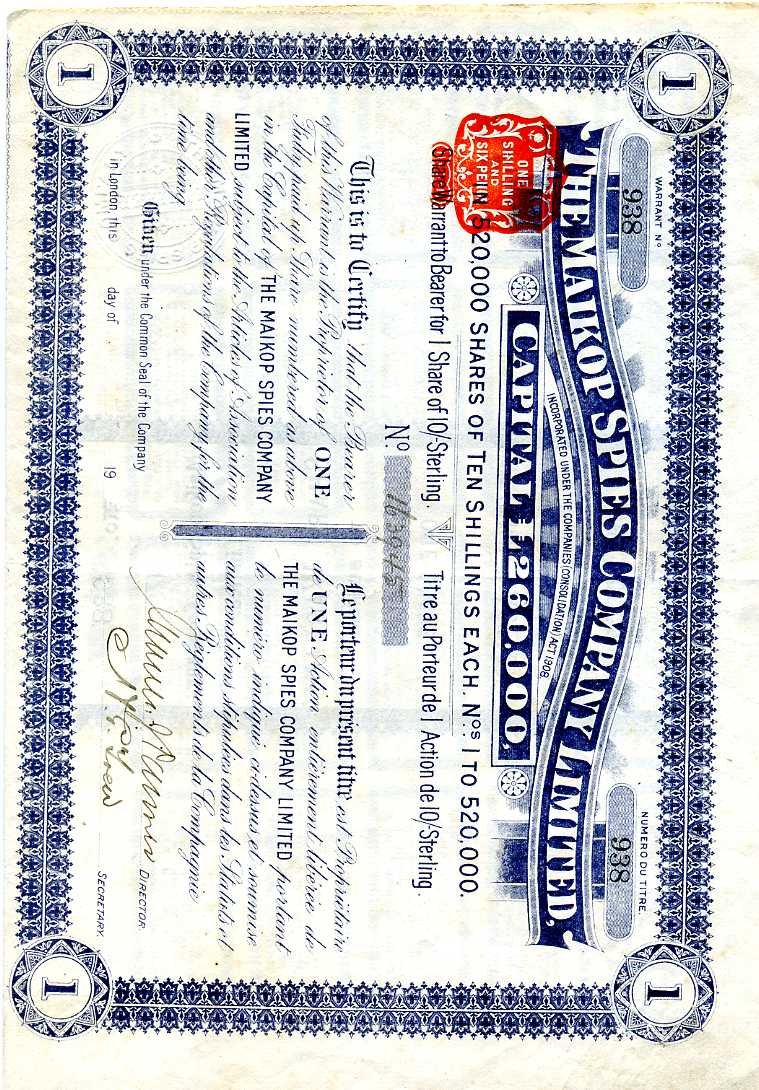 1
1
WARRANT Nº
938
NUMERO DU TITRE
938
THE MAIKOP SPIES COMPANY LIMITED,
INCORPORATED UNDER THE COMPANIES (CONSOLIDATION) ACT 1908
CAPITAL £260,000,
ONE
SHILLING
AND
SIX PENN
IN 520,000 SHARES OF TEN SHILLINGS EACH. Nos 1 TO 520,000.
Share Warrant to Bearer for 1 Share of 10/- Sterling.
Titre au Porteur de 1 Action de 10/- Sterling.
Nº
This is to Certify that the Bearer
of this Warrant is the Proprietor of ONE
Fully paid up Share numbered as above
in the Capital of THE MAIKOP SPIES COMPANY
LIMITED subject to the Articles of Association
and the Regulations of the Company for the
time being
Le porteur du présent titre est Propriétaire
de UNE Action entièrement libérée de
THE MAIKOP SPIES COMPANY LIMITED portant
le numéro indiqué ci-dessus et soumise
aux conditions stipulées dans les Statuts et
autres Règlements de la Compagnie
Given under the Common Seal of the Company
in London, this day of 19
DIRECTOR.
SECRETARY.
1
1